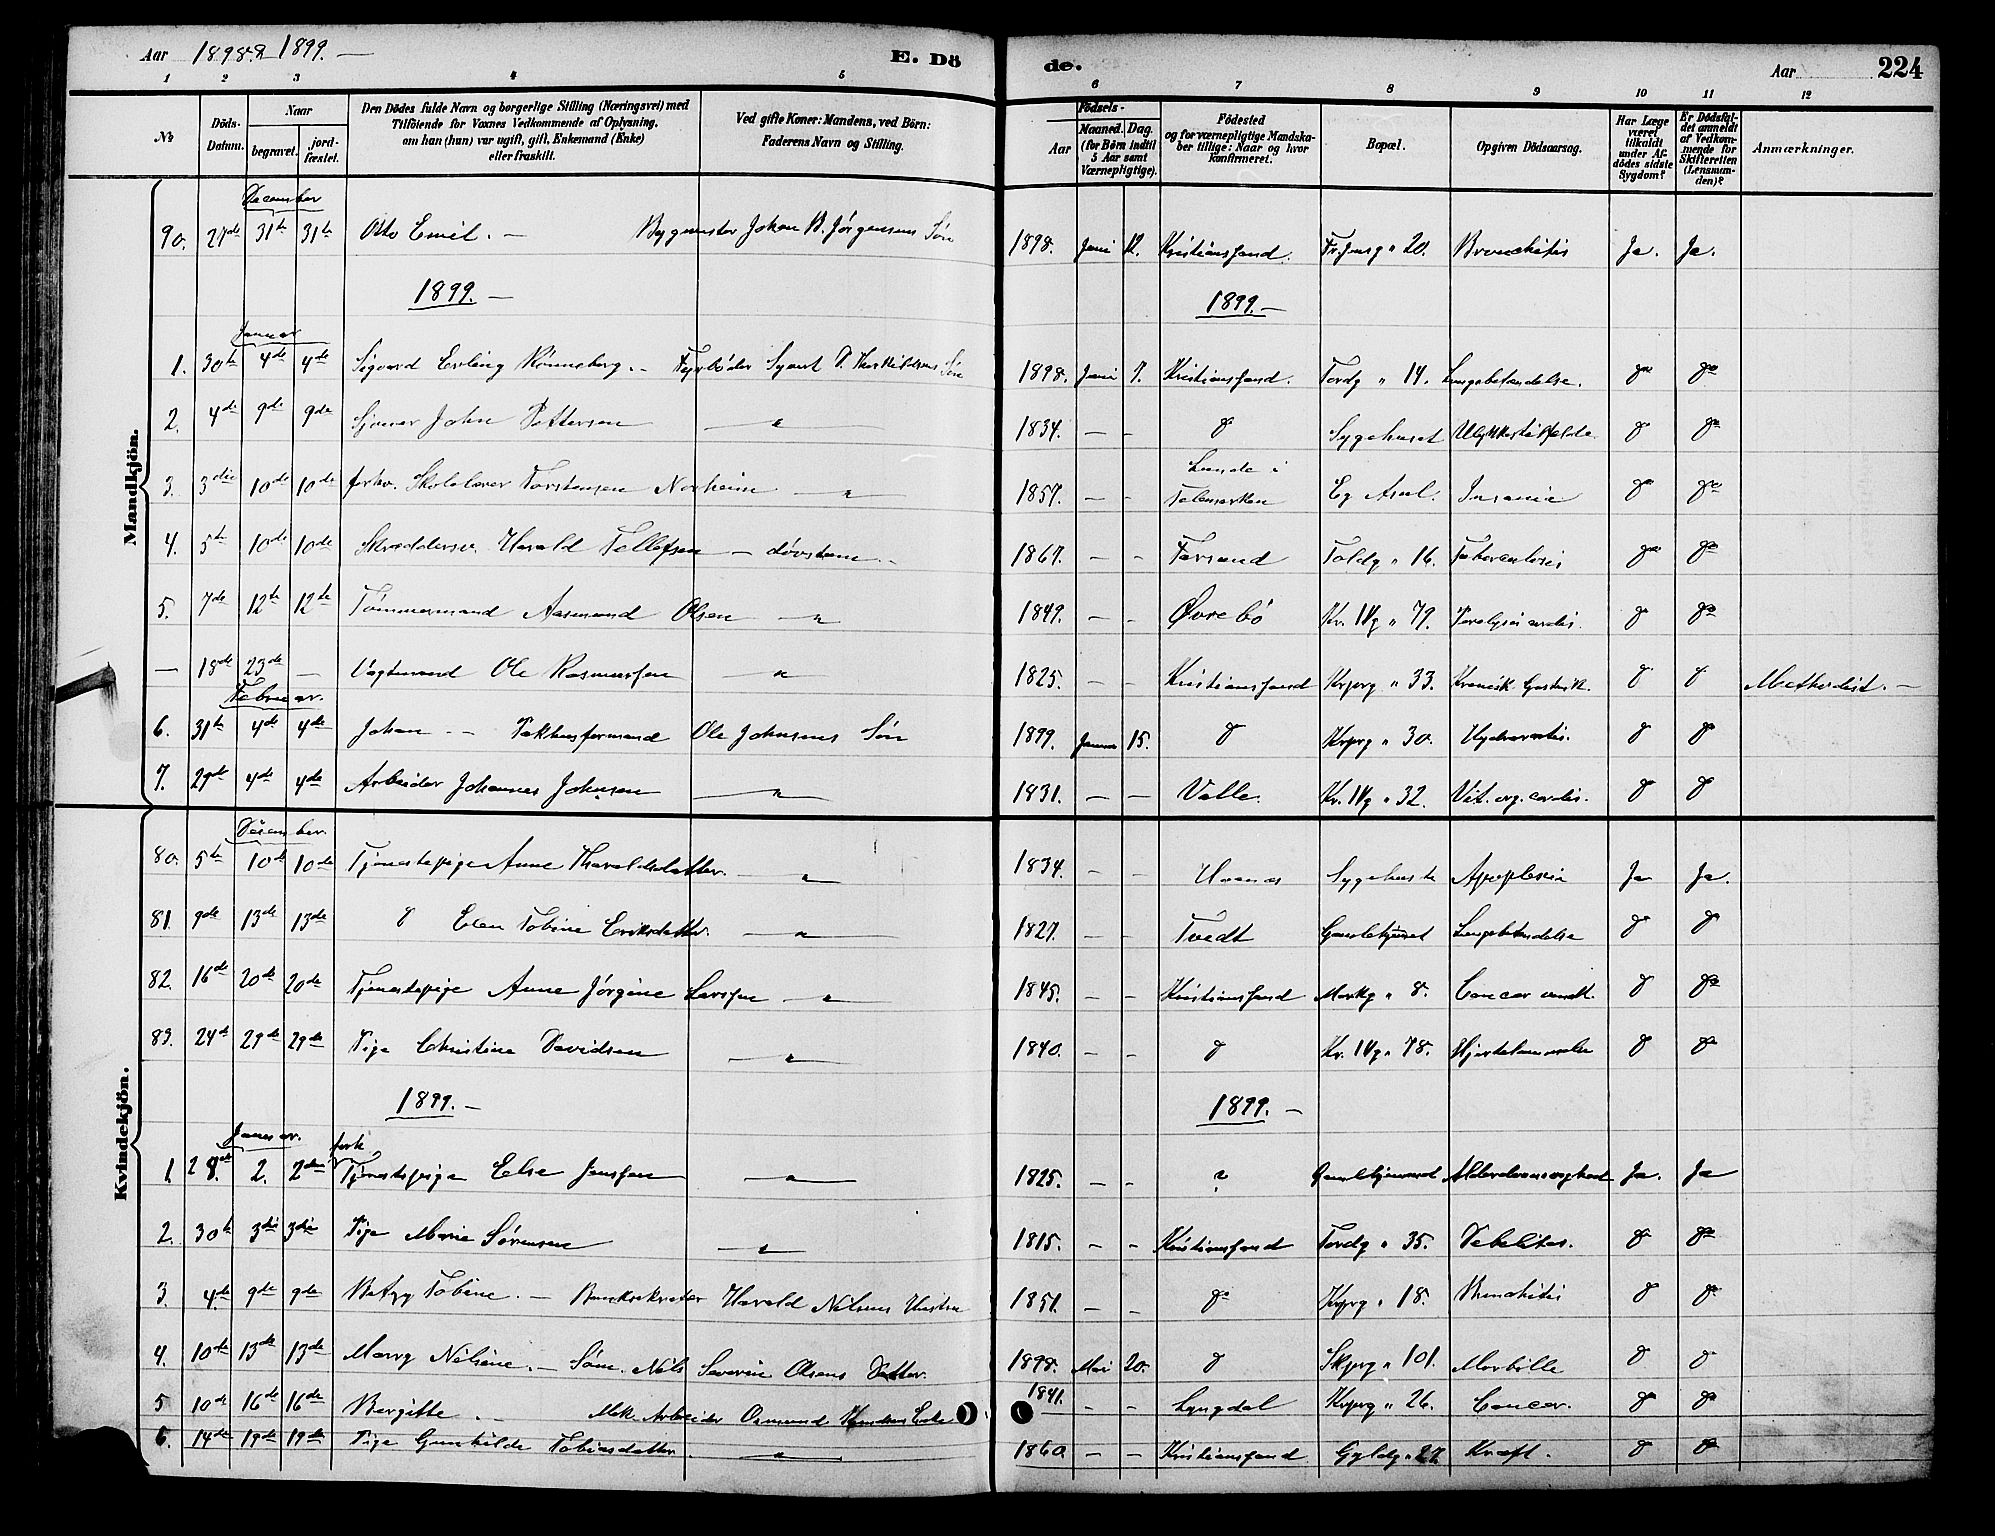 Aar 1898 & 1899. —
E. Dö
de.
Aar
224
1 2 3 4 5 6 7 8 9 10 11 12
No
Döds-Datum.
Naar
begravet.
jord-fæstet.
Den Dödes fulde Navn og borgerlige Stilling (Næringsvei) med
Tilföiende for Voxnes Vedkommende af Oplysning,
om han (hun) var ugift, gift, Enkemand (Enke)
eller fraskilt.
Ved gifte Koner: Mandens, ved Börn:
Faderens Navn og Stilling.
Födsels-
Aar
Maaned. Dag.
(for Börn indtil
5 Aar samt
Værnepligtige).
Födested
og for værnepligtige Mandska-
ber tillige: Naar og hvor
konfirmeret.
Bopæl.
Opgiven Dödsaarsag.
Har Læge
været
tilkaldt
under Af-
dödes sidste
Sygdom?
Er Dödsfal-
det anmeldt
af Vedkom-
mende for
Skifteretten
(Lensman-
den)?
Anmærkninger.
Mandkjön.
December
90. 27de 31te 31te Otto Emil. — Bygmester Johan B. Jörgensens Sön 1898. Juni 12. Kristianssand. 20. Bronchitis Ja. Ja.
1899. — 1899. —
Januar
1. 30te 4de 4de Sigvard Erling Rönneberg. — Fyrböder Søn 1898. Juni 7. Kristianssand. Tordg " 14. Lungebetændelse. do do
2. 4de 9de 9de John Pettersen " 1834. — — do Sygehuset Ulykkestilfælde do do
3. 3die 10de 10de forhv. Skolelærer Torstensen Norheim " 1857. — — Lunde i Telemarken Eg Asyl. Insania do do
4. 5te 10de 10de Harald Tellefsen — døvstum. — 1867. — — Farsund Toldg " 16. Tuberculosis do do
5. 7de 12te 12te Tømmermand Aasmund Olsen " 1849. — — Øvrebö Kr. IVg " 79. Paralysis cordis. do do
— 18de 23de — Vægtmand Ole Rasmussen " 1825. — — Kristianssand Krprg " 33. Kronisk do do Methodist. —
Februar.
6. 31te 4de 4de Johan — Pakhusformand Ole Johnsens Sön 1899. Januar 15. do Krprg " 30. do do
7. 29de 4de 4de Arbeider Johannes Johnsen " 1831. — — Valle. Kr. IVg " 32. Vit. org. cordis. do do
Kvindekjön.
December.
80. 5te 10de 10de Tjenestepige Anne Haraldsdatter. " 1834. — — Sygehuset Apoplexia Ja Ja.
81. 9de 13de 13de do Elen Tobine Eriksdatter. " 1827. — — Tvedt Gamlehjemmet Lungebetændelse do do
82. 16de 20de 20de Tjenestepige Anne Jörgine Larsen " 1845. — — Kristianssand Markg " 8. Cancer do do
83. 24de 29de 29de Pige Christine Davidsen " 1840. — — do Kr. IVg " 78. do do
1899. — 1899. —
Januar.
1. 28de 2. 2den forh. Tjenestepige Else Jensen " 1825. — — ? Gamlehjemmet Alderdomssvaghed Ja. Ja
2. 30te 3die 3die Pige Marie Sørensen " 1815. — — Kristianssand Tordg " 35. Debilitas. do do
3. 4de 9de 9de Betzy Tobine. — Harald Nilsens Hustru 1851. — — do Krprg " 18. Bronchitis do do
4. 10de 13de 13de Nilsine. — Søm. Nils Severin Olsens Datter. 1898. Mai 20. do Skprg " 101. Morbille do do
5 10de 16de 16de Bergitte. — Mek. Arbeider Osmund 1841. — — Lyngdal Krprg " 26. Cancer. do do
6. 14de 19de 19de Pige Gunhilde Tobiasdatter. " 1860 — — Kristianssand Gyldg " 27. Kræft. do do